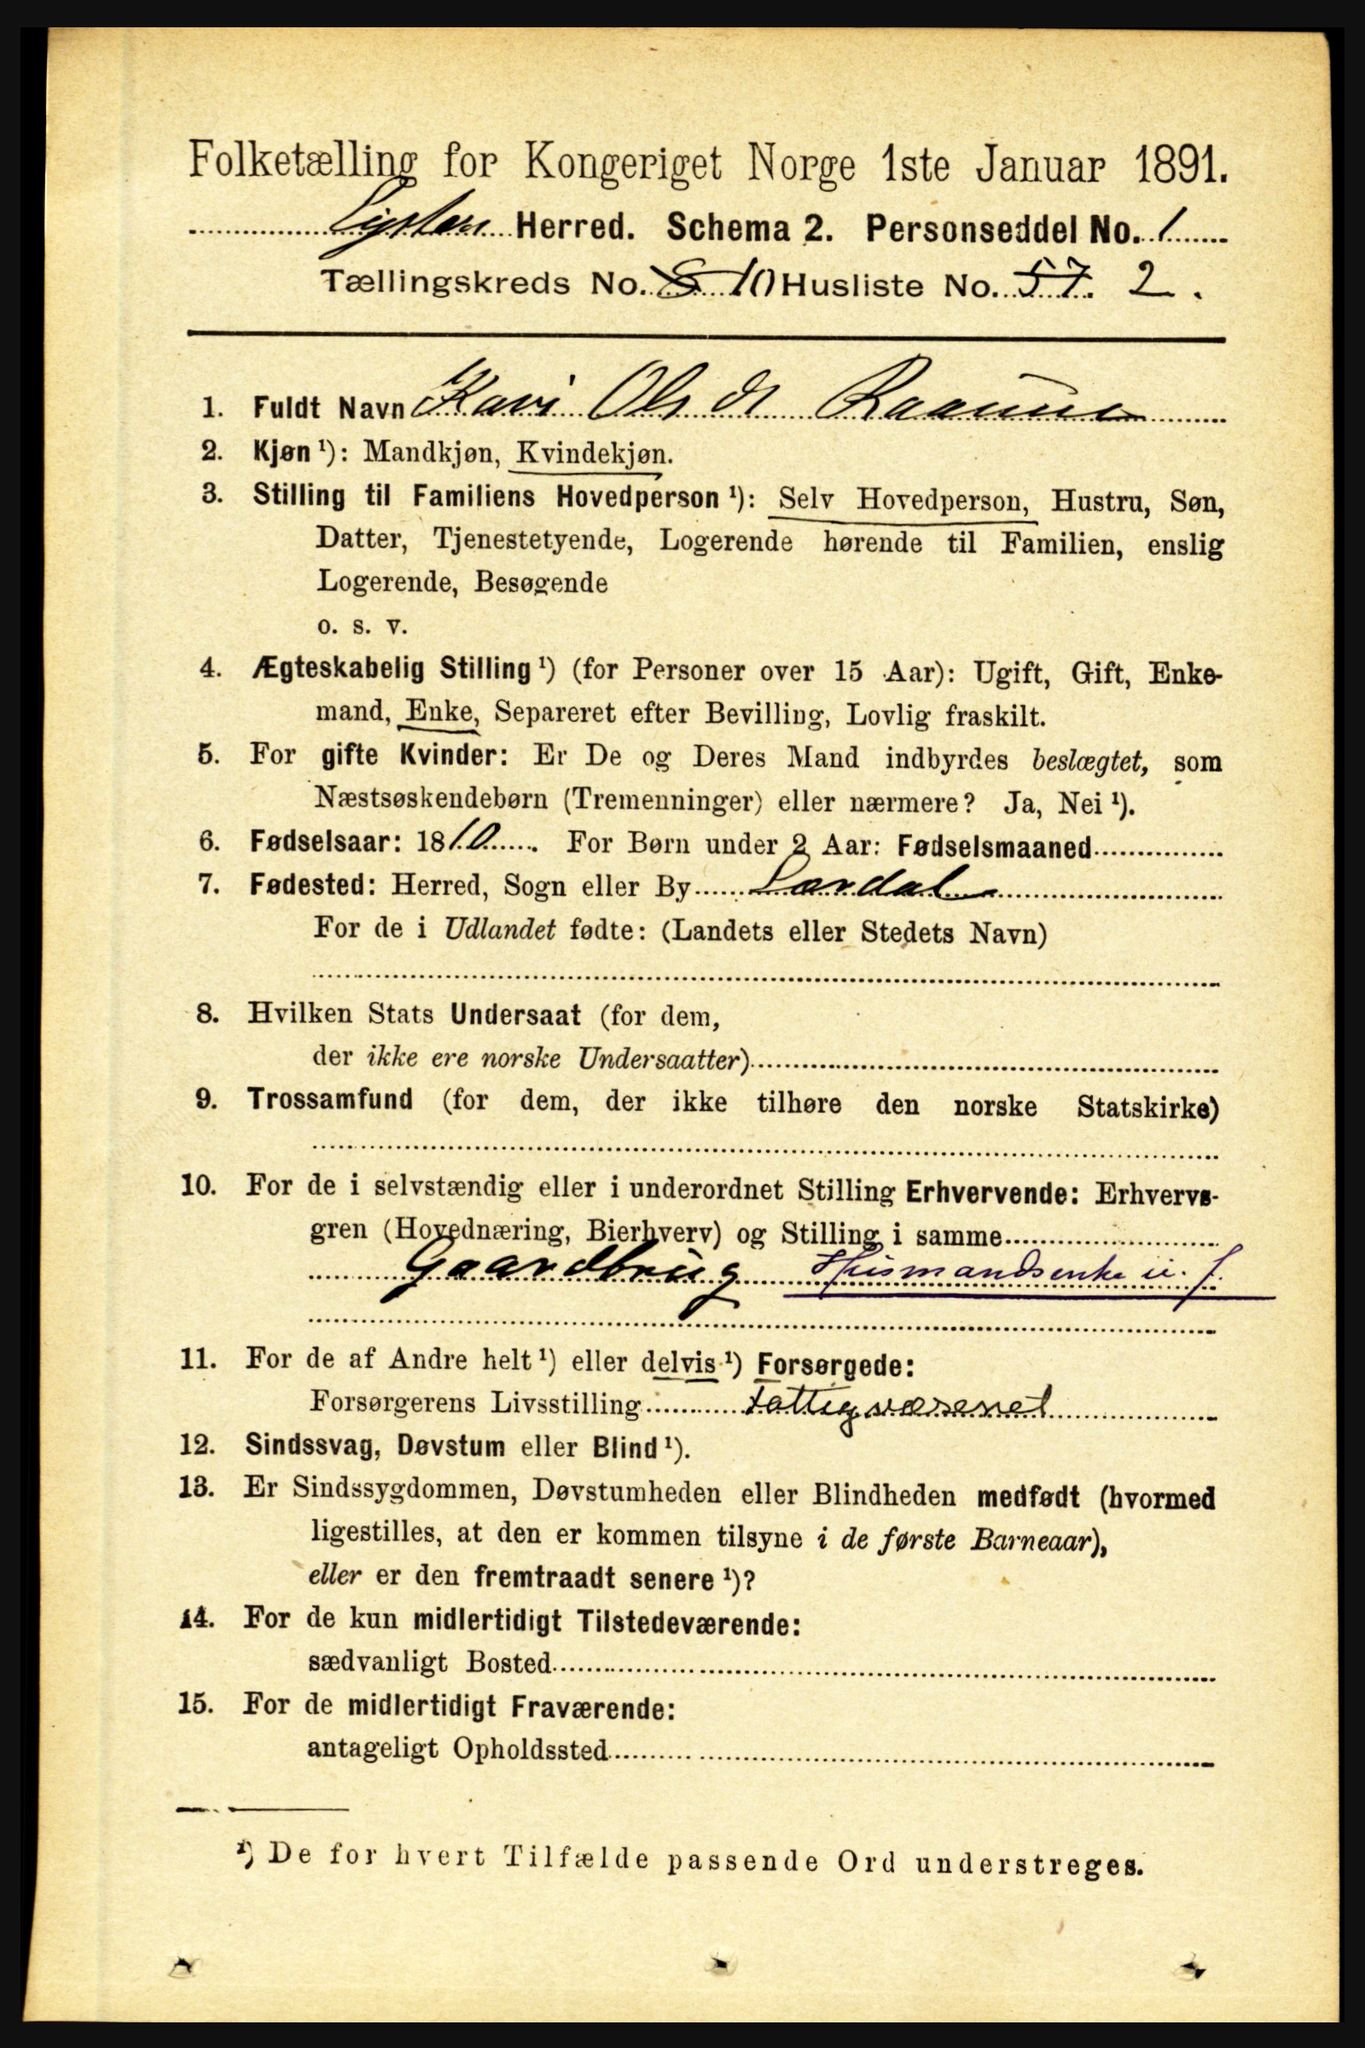 Folketælling for Kongeriget Norge 1ste Januar 1891.
Lyster Herred. Schema 2. Personseddel No. 1
Tællingskreds No. 8 10 Husliste No. 57. 2.
1. Fuldt Navn Kari Olsdt Raaum
2. Kjøn ¹): Mandkjøn, Kvindekjøn.
3. Stilling til Familiens Hovedperson ¹): Selv Hovedperson, Hustru, Søn,
Datter, Tjenestetyende, Logerende hørende til Familien, enslig
Logerende, Besøgende
o. s. v.
4. Ægteskabelig Stilling ¹) (for Personer over 15 Aar): Ugift, Gift, Enke-
mand, Enke, Separeret efter Bevilling, Lovlig fraskilt.
5. For gifte Kvinder: Er De og Deres Mand indbyrdes beslægtet, som
Næstsøskendebørn (Tremenninger) eller nærmere? Ja, Nei ¹).
6. Fødselsaar: 1810. For Børn under 2 Aar: Fødselsmaaned
7. Fødested: Herred, Sogn eller By Lærdal
For de i Udlandet fødte: (Landets eller Stedets Navn)
8. Hvilken Stats Undersaat (for dem,
der ikke ere norske Undersaatter)
9. Trossamfund (for dem, der ikke tilhøre den norske Statskirke)
10. For de i selvstændig eller i underordnet Stilling Erhvervende: Erhvervs-
gren (Hovednæring, Bierhverv) og Stilling i samme
Gaardbrug Husmandsenke u. j.
11. For de af Andre helt ¹) eller delvis ¹) Forsørgede:
Forsørgerens Livsstilling Fattigvæsenet
12. Sindssvag, Døvstum eller Blind ¹).
13. Er Sindssygdommen, Døvstumheden eller Blindheden medfødt (hvormed
ligestilles, at den er kommen tilsyne i de første Barneaar),
eller er den fremtraadt senere ¹)?
14. For de kun midlertidigt Tilstedeværende:
sædvanligt Bosted
15. For de midlertidigt Fraværende:
antageligt Opholdssted
¹) De for hvert Tilfælde passende Ord understreges.